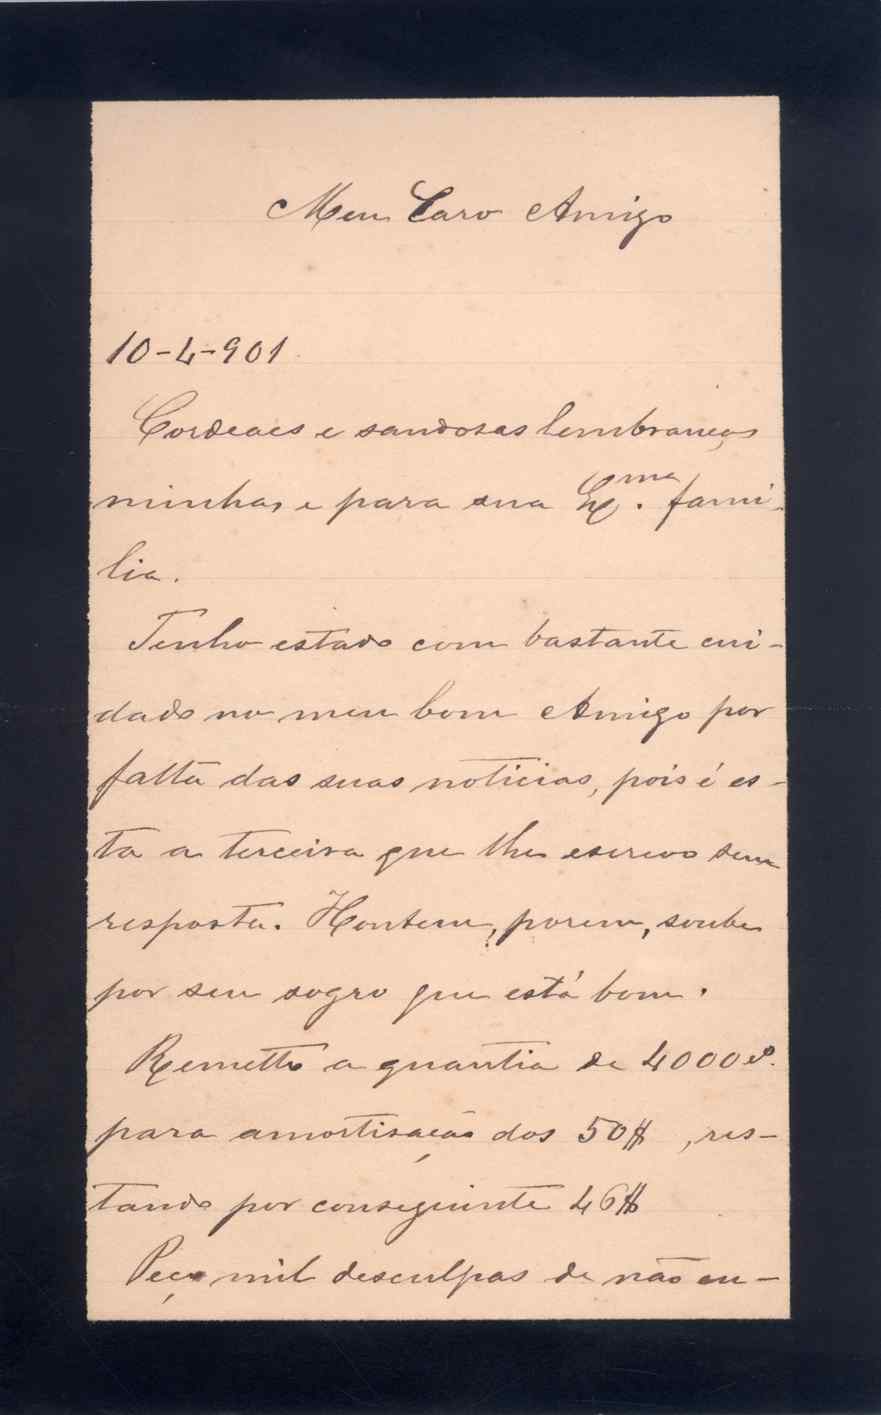 Meu Caro Amigo
10-4-901
Cordeaes e saudosas lembranças
minhas e para sua Ex.ma fami-
lia.
Tenho estado com bastante cui-
dado no meu bom Amigo por
falta das suas noticias, pois é es-
ta a terceira que lhe escrevo sem
resposta. Hontem, porem, soube
por seu sogro que está bom.
Remetto a quantia de 4000 rs.
para amortisação dos 50$, res-
tando por conseguinte 46$
Peço mil desculpas de não en-